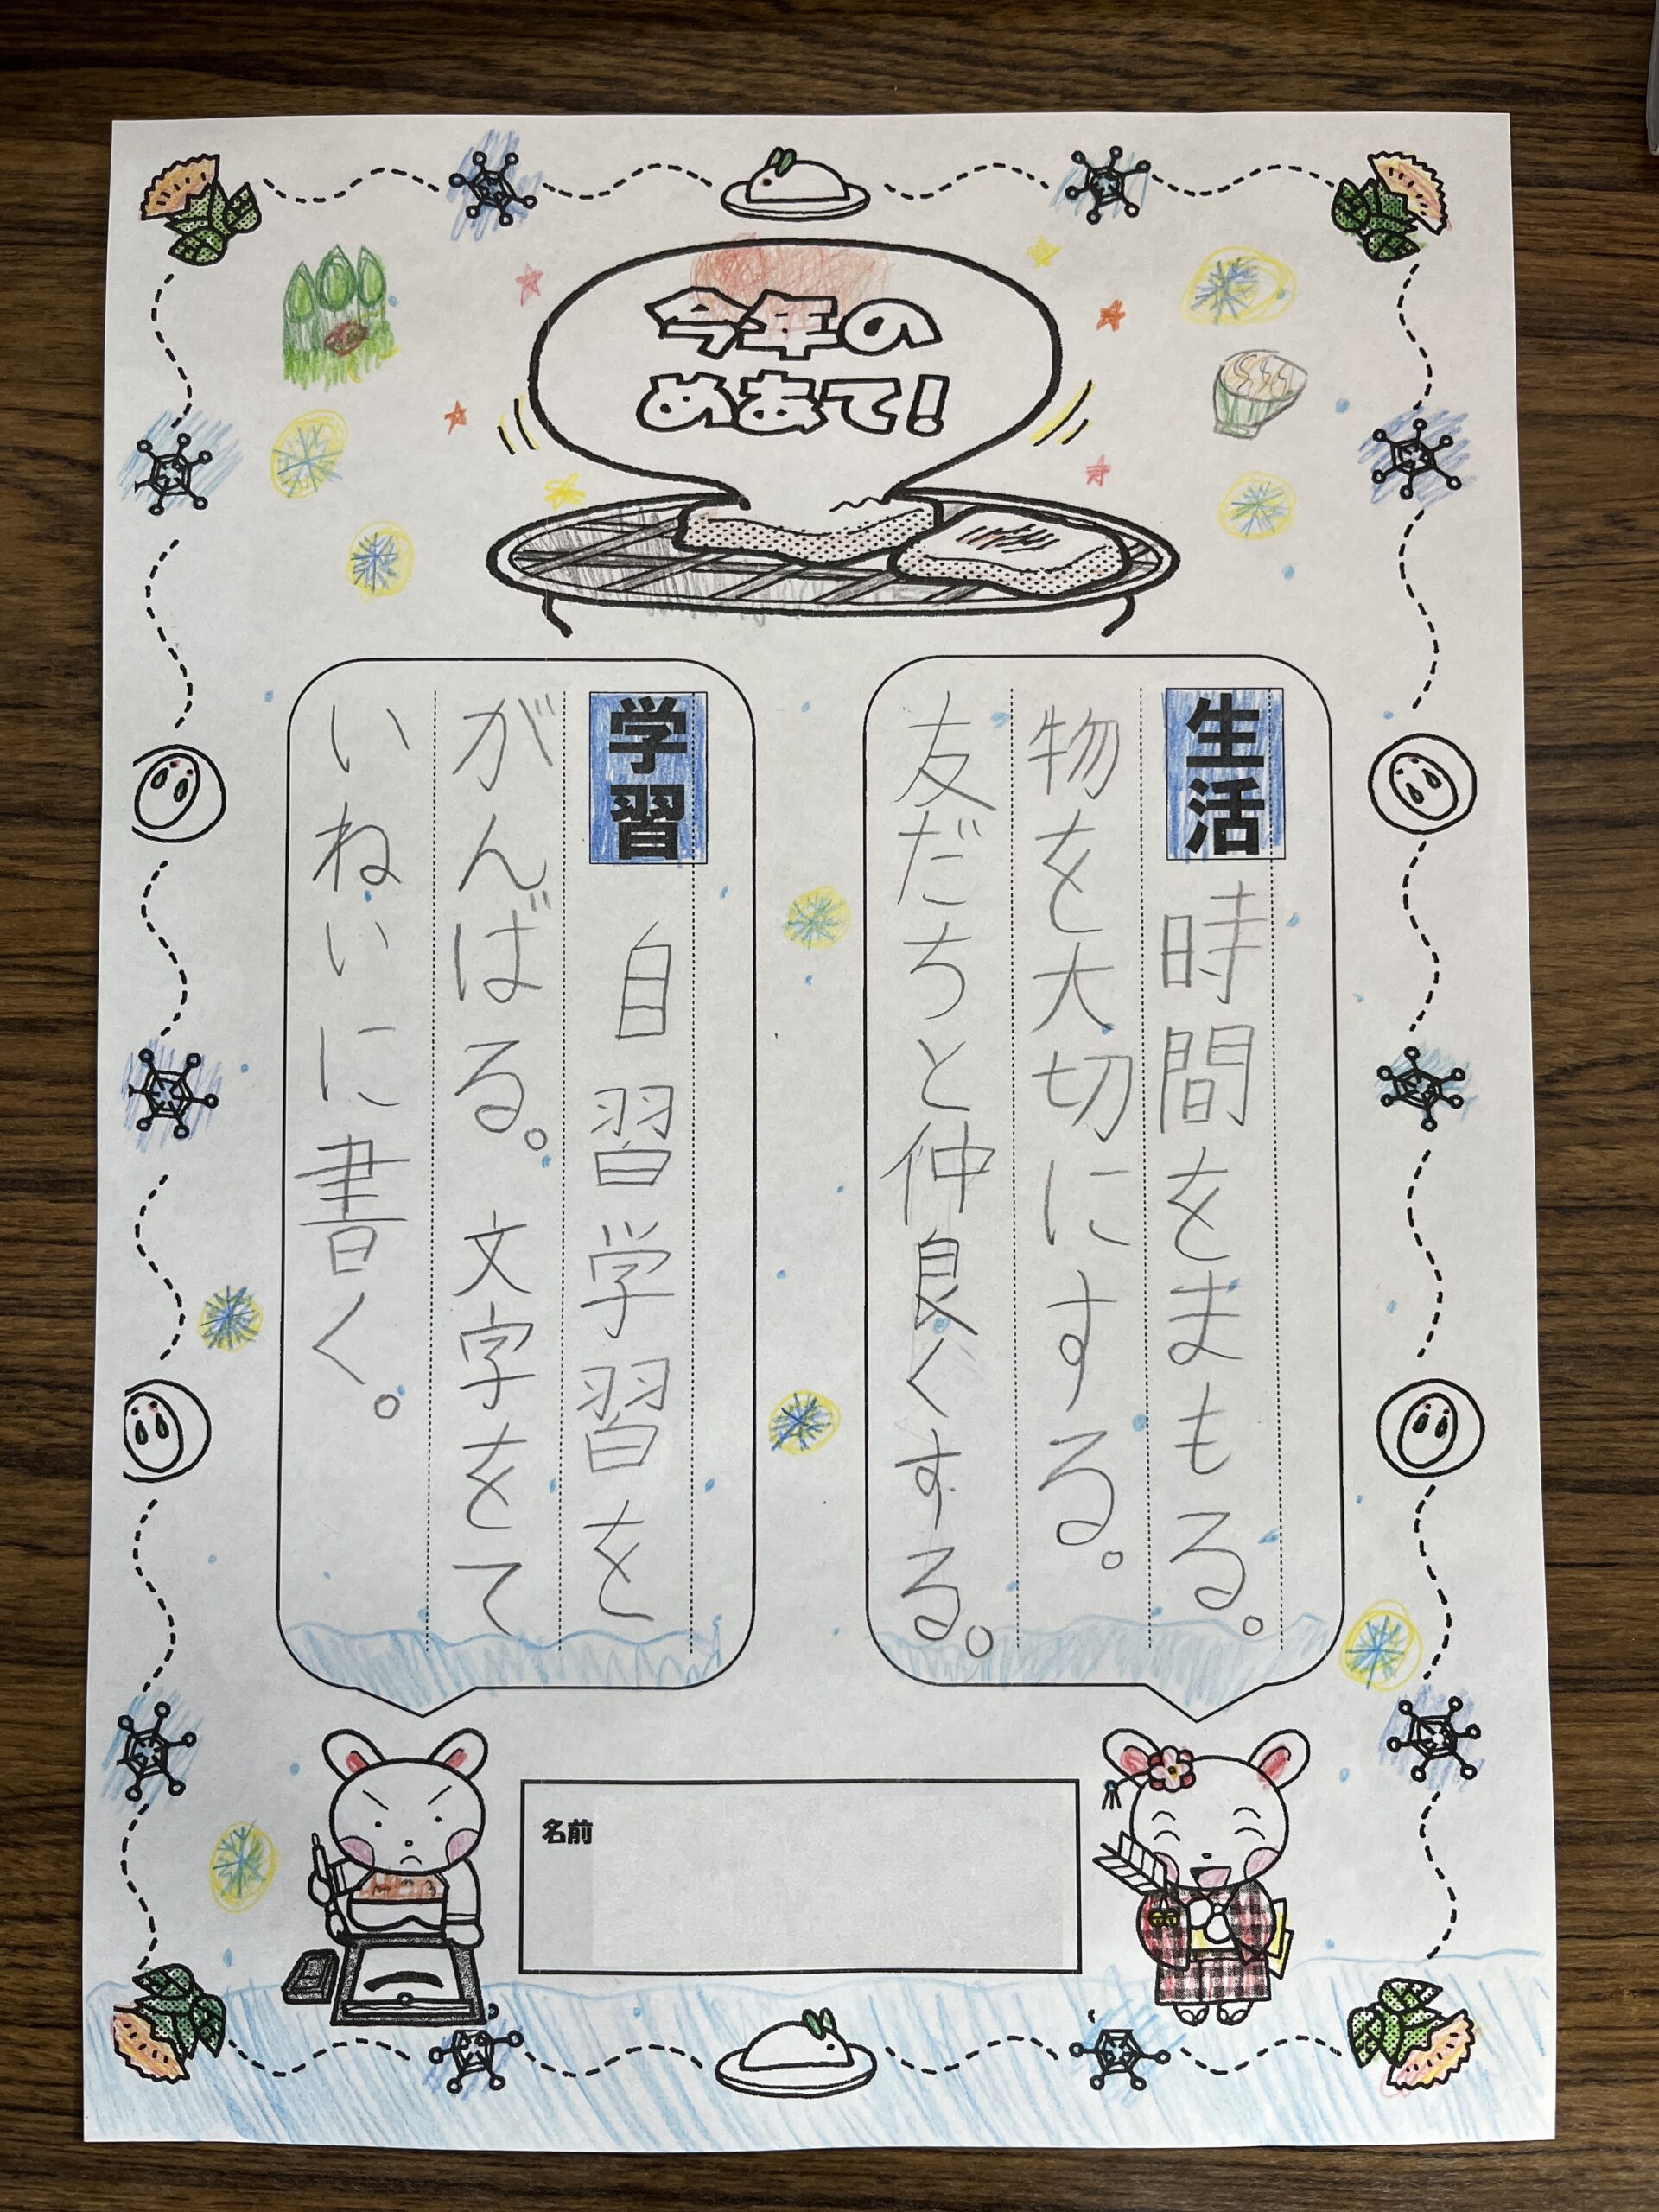 今年の
めあて!
生活
時間をまもる。
物を大切にする。
友だちと仲良くする。
学習
自習学習を
がんばる。文字をて
いねいに書く。
名前